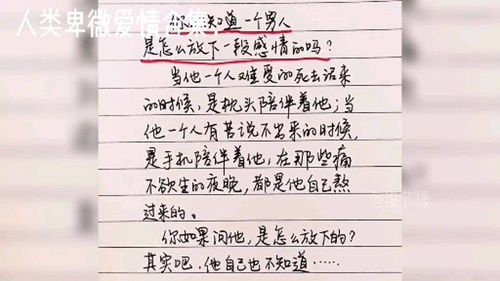 人类卑微爱情合集，
知道一个男人
是怎么放下一段感情的吗？
当他一个人难受的死去活来
的时候，是枕头陪伴着他；当
他一个人有苦说不出来的时候，
是手机陪伴着他；在那些痛
不欲生的夜晚，都是他自己熬
过来的。
你如果问他，是怎么放下的？
其实吧，他自己也不知道……